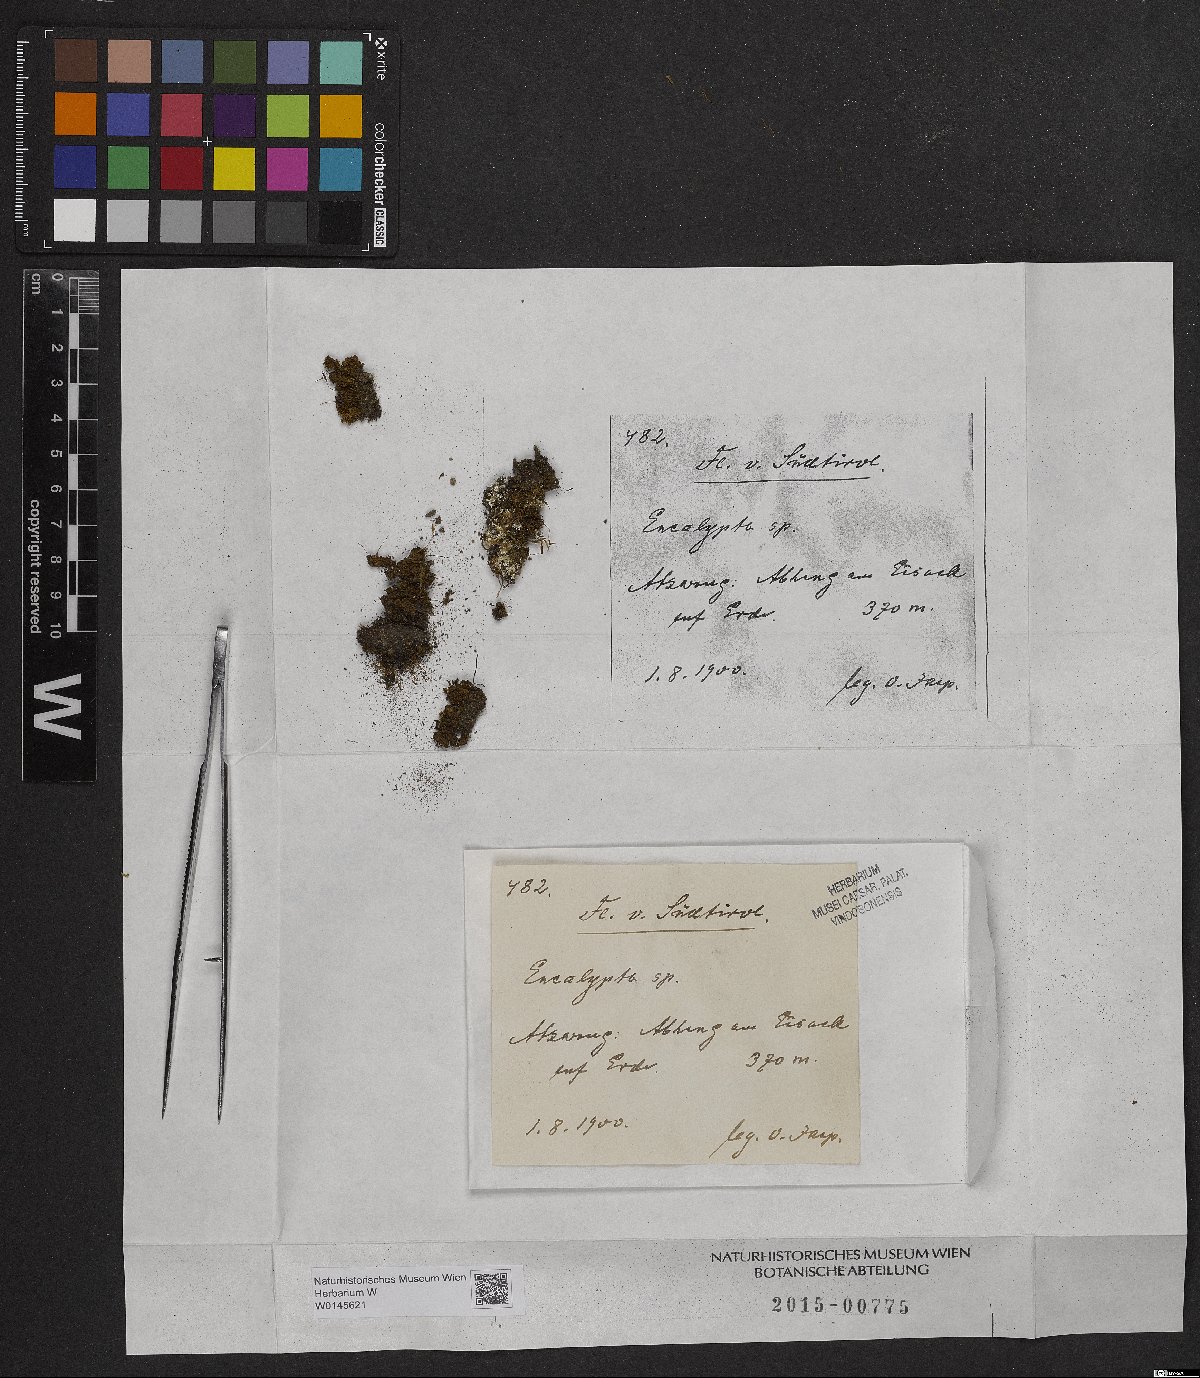 x-rite
colorchecker CLASSIC
mm
cm
0 1 2 3 4 5 6 7 8 9 10
copyright reserved
W
482.
Fl. v. Südtirol.
Encalypta sp.
Atzwang: Abhang am Eisack
auf Erde. 370 m.
1.8.1900.
leg. v.
482.
Fl. v. Südtirol.
Encalypta sp.
Atzwang: Abhang am Eisack
auf Erde 370 m.
1.8.1900.
leg. v.
HERBARIUM
MUSEI CAESAR. PALAT.
VINDOBONENSIS
NATURHISTORISCHES MUSEUM WIEN
BOTANISCHE ABTEILUNG
2015-00775
Naturhistorisches Museum Wien
Herbarium W
W0145621